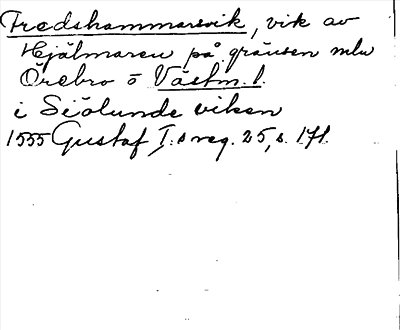 Fredshammarsvik, vik av
Hjälmaren på gränsen mlu
Örebro o Västm. l.
i Siölunde viken
1555 Gustaf I:s reg. 25, s. 171.